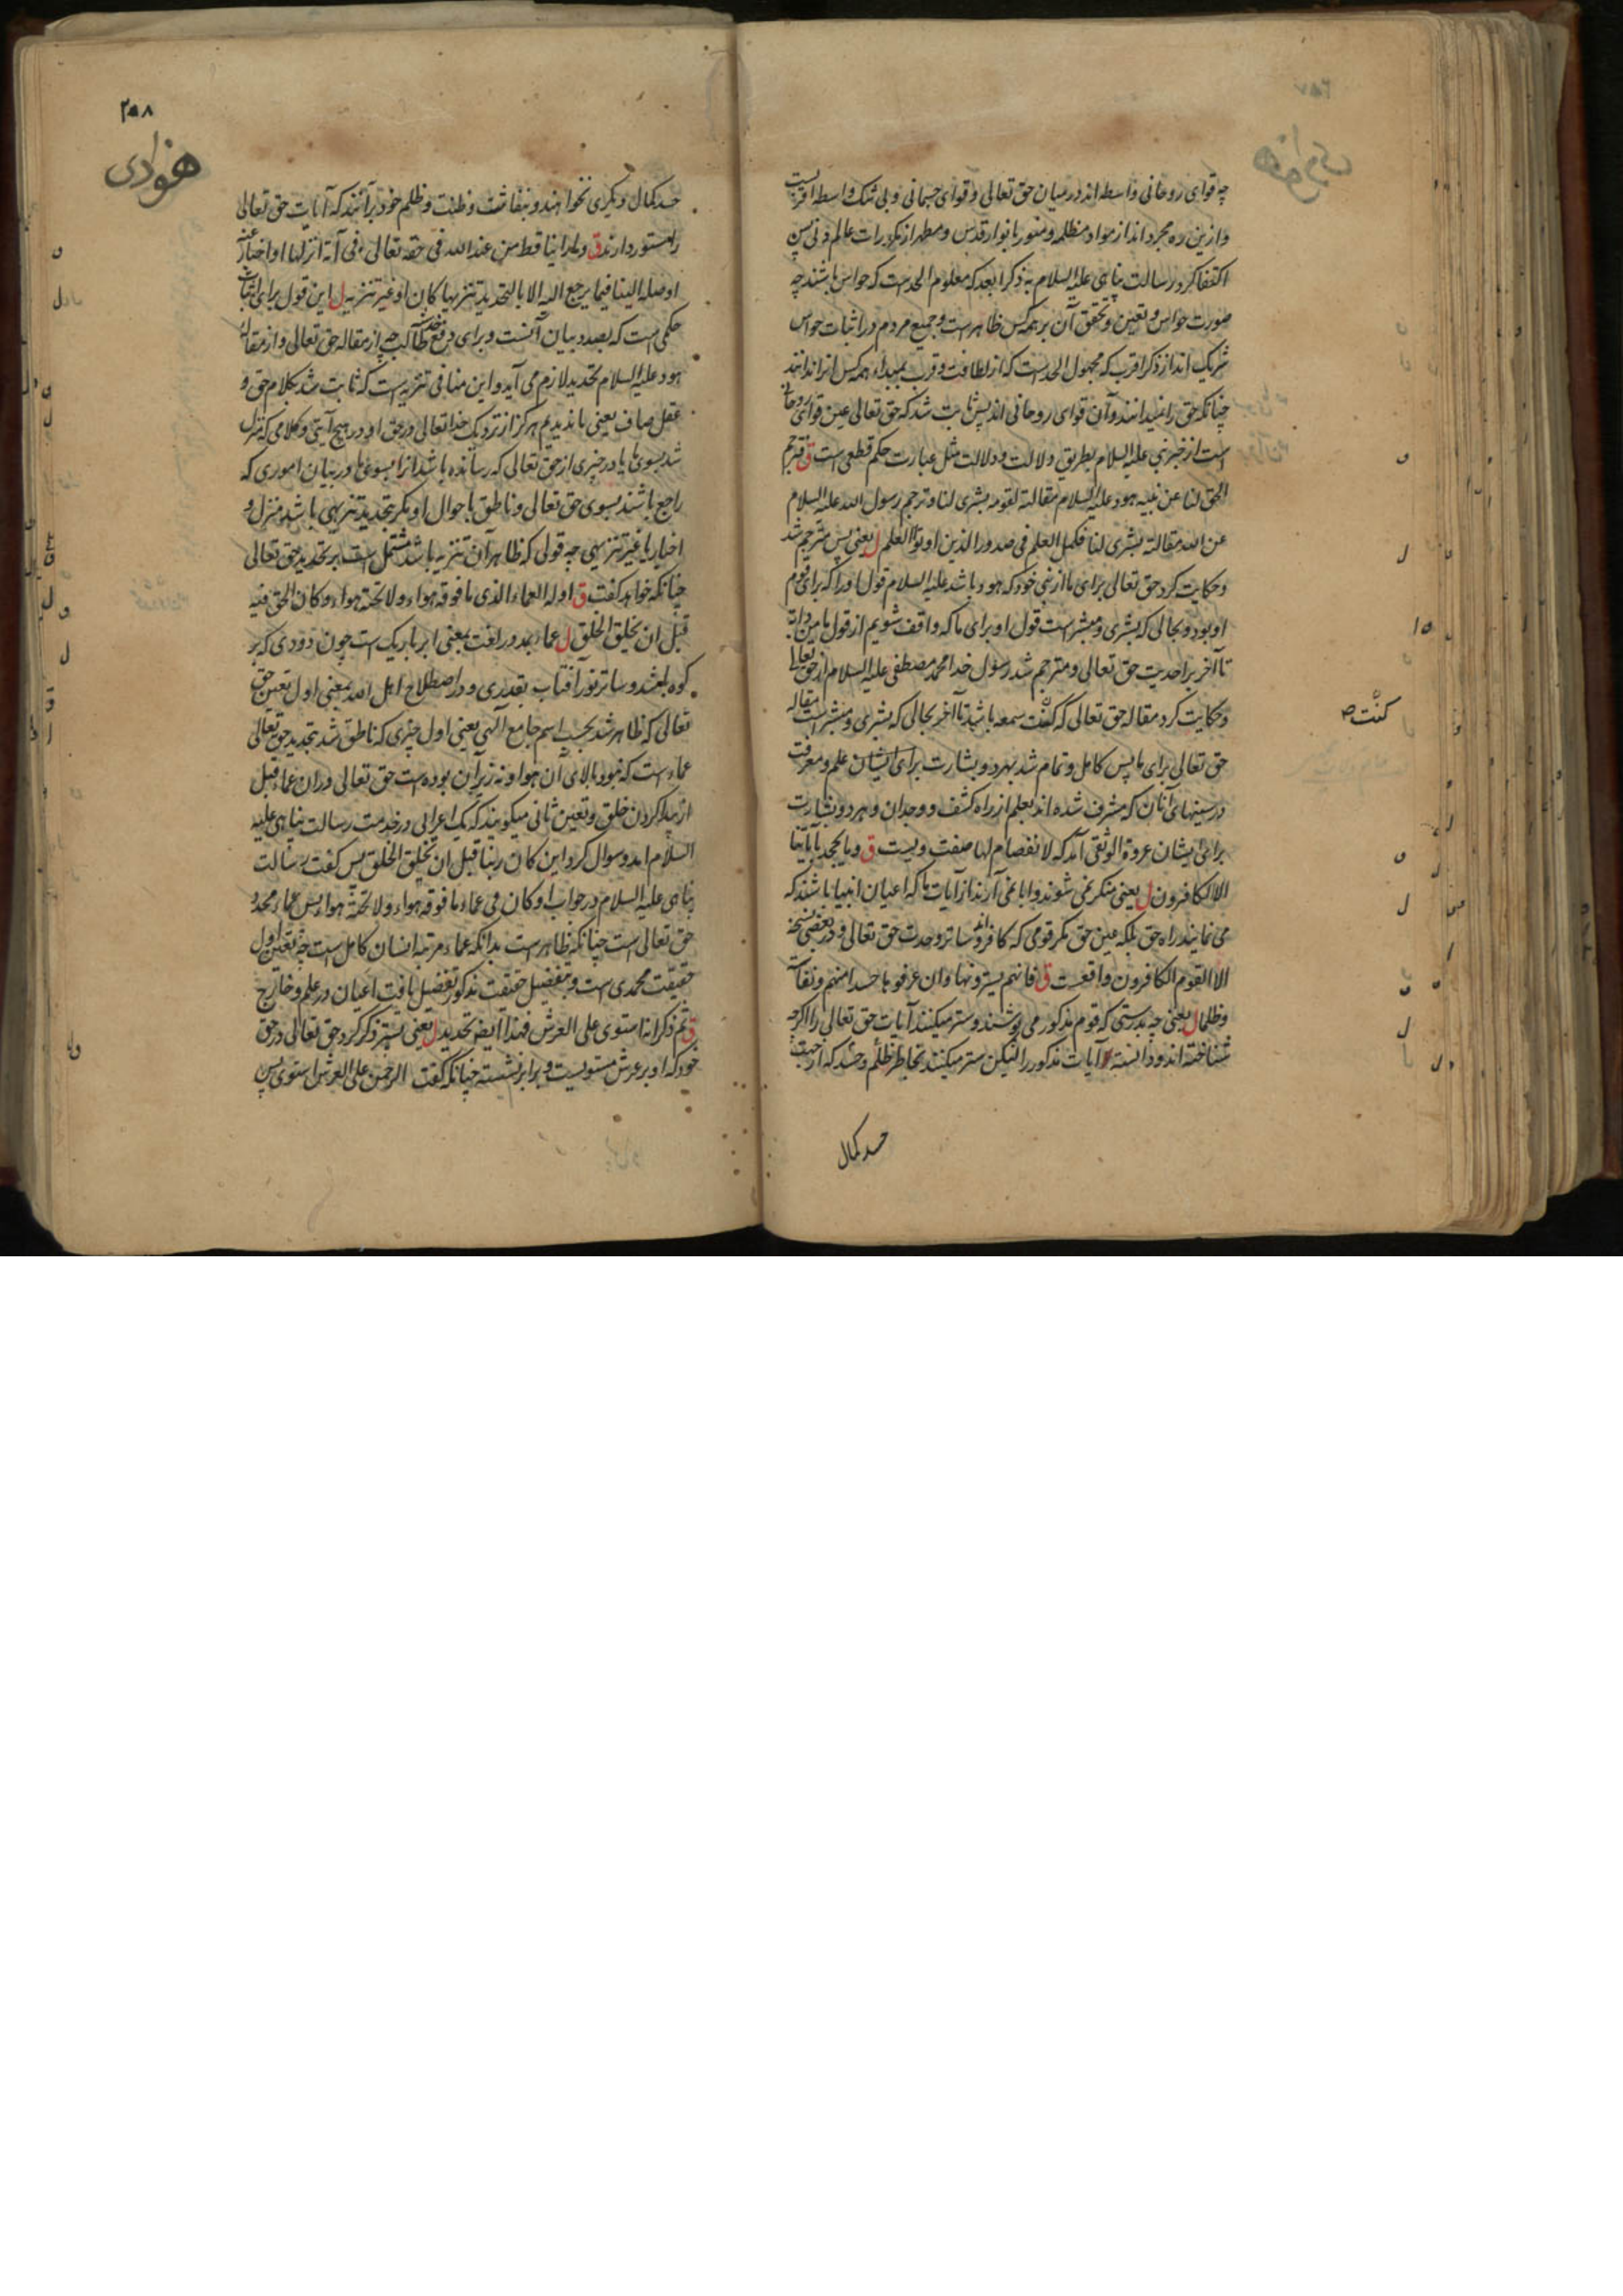 چه قوای روحانی واسطه اند در میان حق تعالی و قوای جسمانی و بی شک واسطه اقربست
و ازین ره مجرد اند از مواد مظلمه و منور بانوار قدس و مطهر از کدورات عالم دنی پس
اکتفا کرد رسالت پناهی علیه السلام به ذکر ابعد که معلوم الحد است که حواس باشند چه
صورت حواس و تعین و تحقق آن بر همه کس ظاهر است و جمیع مردم در اثبات حواس
شریک اند از ذکر اقرب که مجهول الحد است که از لطافت و قرب بمبداء همه کس انرا ندانند
چنانکه حق را نمیدانند و آن قوای روحانی اند پس ثابت شد که حق تعالی عین قوای روحانی
است از خبر نبی علیه السلام بطریق دلالت و دلالت مثل عبارت حکم قطعی است ق فترجم
الحق لنا عن نبیه هود علیه السلام مقالته لقومه بشری لنا و ترجم رسول الله علیه السلام
عن الله مقالته بشری لنا فکمل العلم فی صدور الذین اوتوا العلم ل یعنی پس مترجم شد
و حکایت کرد حق تعالی برای ما از نبی خود که هود باشد علیه السلام قول او را که برای قوم
او بود و بحالی که بشری و مبشر است قول او برای ما که واقف شویم از قول ما من دابة
تا آخر بر احدیت حق تعالی و مترجم شد رسول خدا محمد مصطفی علیه السلام از حق تعالی
و حکایت کرد مقاله حق تعالی که کنت سمعه باشد تا آخر بحالی که بشری و مبشر است مقاله
کنت صـ
حق تعالی برای ما پس کامل و تمام شد بهر دو بشارت برای ایشان علم و معرفت
در سینهای آنان که مشرف شده اند بعلم از راه کشف و وجدان و هر دو بشارت
برای ایشان عروة الوثقی آمد که لا انفصام لها صفت ویست ق و ما یجحد بآیاتنا
الا الکافرون ل یعنی منکر نمی شوند و ابا نمی آرند از آیات ما که اعیان انبیا باشند که
می نمایند راه حق بلکه عین حق مگر قومی که کافراند و ساتر وحدت حق تعالی و در بعضی نسخه
الا القوم الکافرون واقعست ق فانهم یسترونها و ان عرفوها حسدا منهم و نفاسة
و ظلما ل یعنی چه بدرستی که قوم مذکور می پوشند و ستر میکنند آیات حق تعالی را اگرچه
شناخته اند و دانسته آیات مذکور را لیکن ستر میکنند بخاطر ظلم و حسد که از جهت
حسد کمال
٢٥٨
هوادی
حسد کمال دیگری نخواهند و بنفاست و ظنت و ظلم خود برآنند که آیات حق تعالی
را مستور دارند ق و ما راینا قط من عند الله فی حقه تعالی فی آیة انزلها او اخبار عنه
اوصله الینا فیما یرجع الیه الا بالتحدید تنزیها کان او غیر تنزیه ل این قول برای اثبات
حکمی است که بصدد بیان آنست و برای دفع
هود علیه السلام تحدید لازم می آید و این منافی تنزیه است که ثابت شد بکلام حق و
عقل صاف یعنی ما ندیدیم هرگز از نزدیک خدا تعالی در حق او در هیچ آیتی و کلامی که تنزل
شد بسوی ما یا در خبری از حق تعالی که رسانده باشد انرا بسوی ما در بیان اموری که
راجع باشند بسوی حق تعالی و ناطق باحوال او مگر بتحدید تنزیهی باشد منزل و
اخبار یا غیر تنزیهی چه قولی که ظاهر آن تنزیه باشد مشتمل است بر تحدید حق تعالی
چنانکه خواهد گفت ق اوله العماء الذی ما فوقه هواء و لا تحته هواء و کان الحق فیه
قبل ان یخلق الخلق ل عماء بمد در لغت بمعنی ابر باریک است چون دودی که بر
کوه باشد و ساتر نور آفتاب بقدری و در اصطلاح اهل الله بمعنی اول تعین حق
تعالی که ظاهر شد بحسب اسم جامع الهی یعنی اول چیزی که ناطق شد بتحدید حق تعالی
عماء است که نبود بالای آن هوا و نه زیر آن بوده است حق تعالی دران عماء قبل
از پیدا کردن خلق و تعین ثانی میگویند که یک اعرابی در خدمت رسالت پناهی علیه
السلام امد و سوال کرد این کان ربنا قبل ان یخلق الخلق پس گفت رسالت
پناهی علیه السلام در جواب او کان فی عماء ما فوقه هواء و لا تحته هواء پس عماء محدد
حق تعالی است چنانکه ظاهر است بدانکه عماء مرتبه انسان کامل است چه تعین اول
حقیقت محمدی است و بتفصیل حقیقت مذکور تفصیل یافت اعیان در علم و خارج
ق ثم ذکر انه استوی علی العرش فهذا ایضا تحدید ل یعنی پستر ذکر کرد حق تعالی در حق
خود که او بر عرش مستویست و برابر نشسته چنانکه گفت الرحمن علی العرش استوی پس